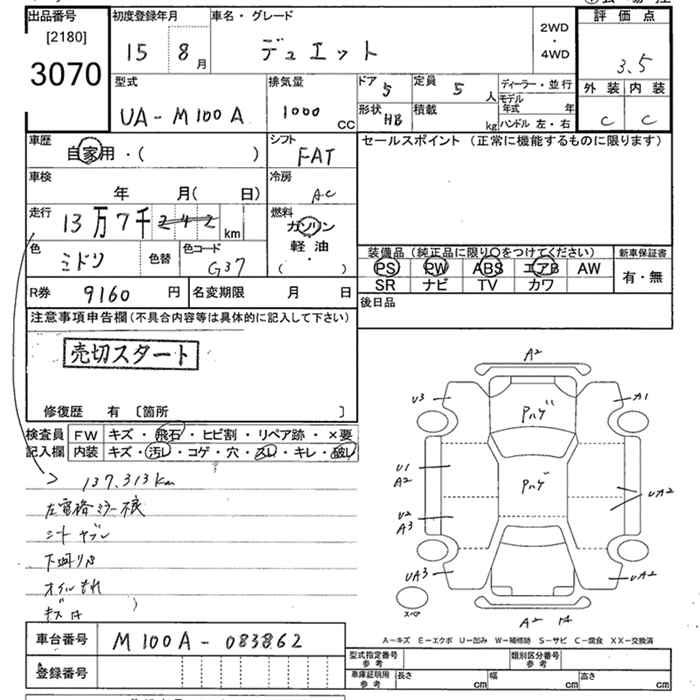 出品番号 初度登録年月 車名・グレード 2WD・4WD 評価点
[2180]
3070 15 8月 デュエット 3.5
型式 排気量 ドア 5 定員 5人 ディーラー・並行 外装 内装
UA-M100A 1000cc 形状 HB 積載 kg モデル年式 年 C C
ハンドル 左・右
車歴 自家用・( ) シフト FAT セールスポイント(正常に機能するものに限ります)
車検 年 月( 日) 冷房 AC
走行 13万7千242km 燃料 ガソリン
色 ミドリ 色替 色コード G37 軽油 ( ・ )
装備品(純正品に限り○をつけてください) 新車保証書
PS PW ABS エアB AW 有・無
SR ナビ TV カワ
R券 9160円 名変期限 月 日 後日品
注意事項申告欄(不具合内容等は具体的に記入して下さい)
売切スタート
修復歴 有 〔箇所 〕
検査員 FW キズ・飛石・ヒビ割・リペア跡・×要
記入欄 内装 キズ・汚レ・コゲ・穴・スレ・キレ・破レ
137,313km
左電格ミラー
シートヤブレ
下廻りサビ
オイルもれ
A2
U3 A1
Pハゲ
U1
A2
Pハゲ
UA2
U2
A3
UA3 UA2
スペア
A2
A-キズ E-エクボ U-凹み W-補修跡 S-サビ C-腐食 XX-交換済
車台番号 M100A-083862
登録番号
型式指定番号 参考 類別区分番号 参考
車庫証明用 参考 長さ cm 幅 cm 高さ cm